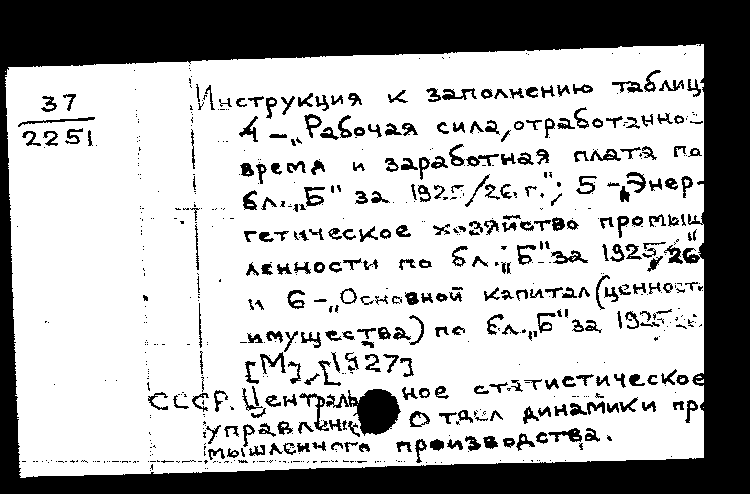 37
2251
Инструкция к заполнению таблиц
4 – „Рабочая сила, отработанно
время и заработная плата по
бл. „Б" за 1925/26 г."; 5 – „Энер-
гетическое хозяйство промыш
ленности по бл. „Б" за 1925/26
и 6 – „Основной капитал (ценност
имущества) по бл. „Б" за 1925/26
[М], [1927]
СССР. Централь ное статистическое
управление Отдел динамики про
мышленного производства.